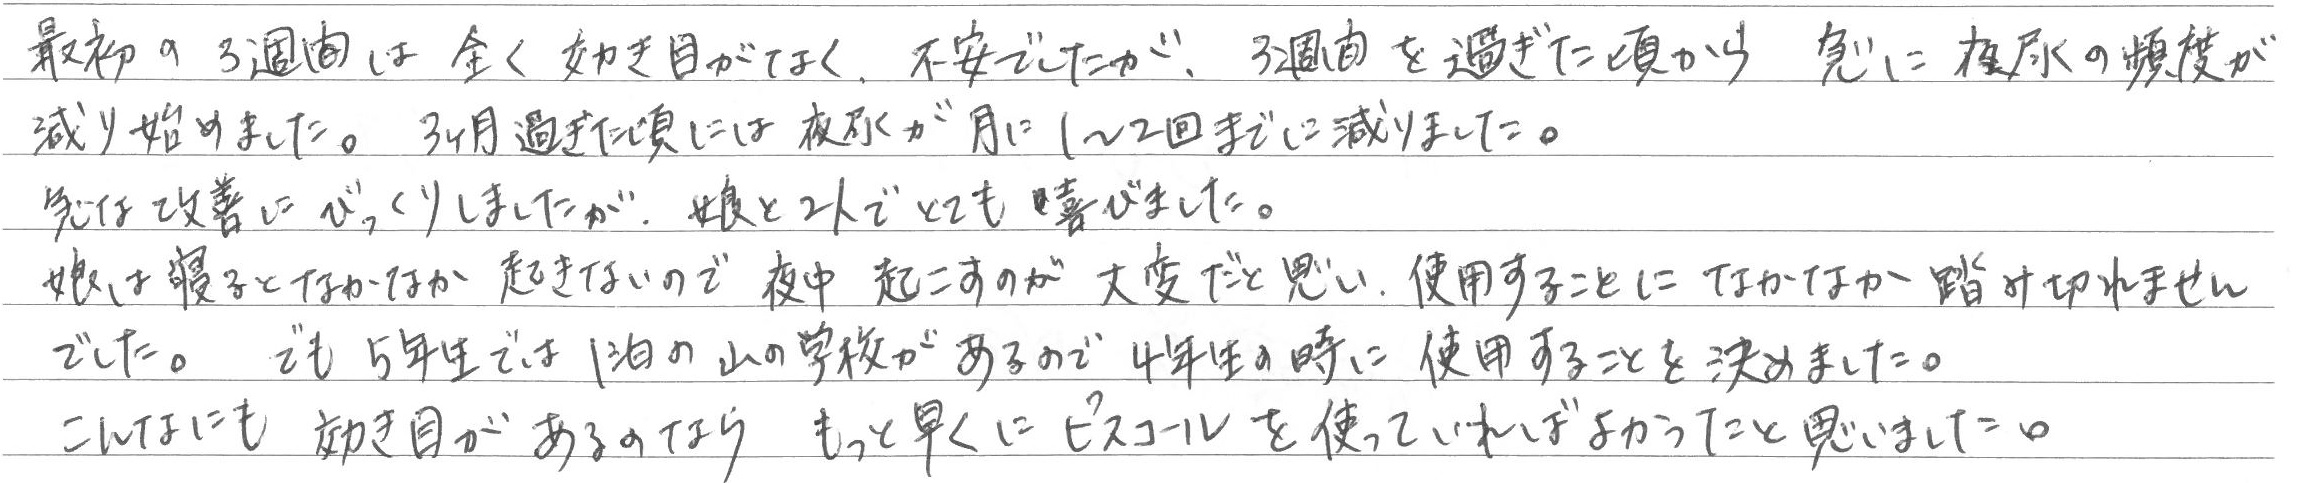 最初の3週間は全く効き目がなく、不安でしたが、3週間を過ぎた頃から急に夜尿の頻度が
減り始めました。3ヶ月過ぎた頃には夜尿が月に1〜2回までに減りました。
急な改善にびっくりしましたが、娘と2人でとても喜びました。
娘は寝るとなかなか起きないので夜中起こすのが大変だと思い、使用することになかなか踏み切れません
でした。でも5年生では1泊の山の学校があるので4年生の時に使用することを決めました。
こんなにも効き目があるのならもっと早くにピスコールを使っていればよかったと思いました。